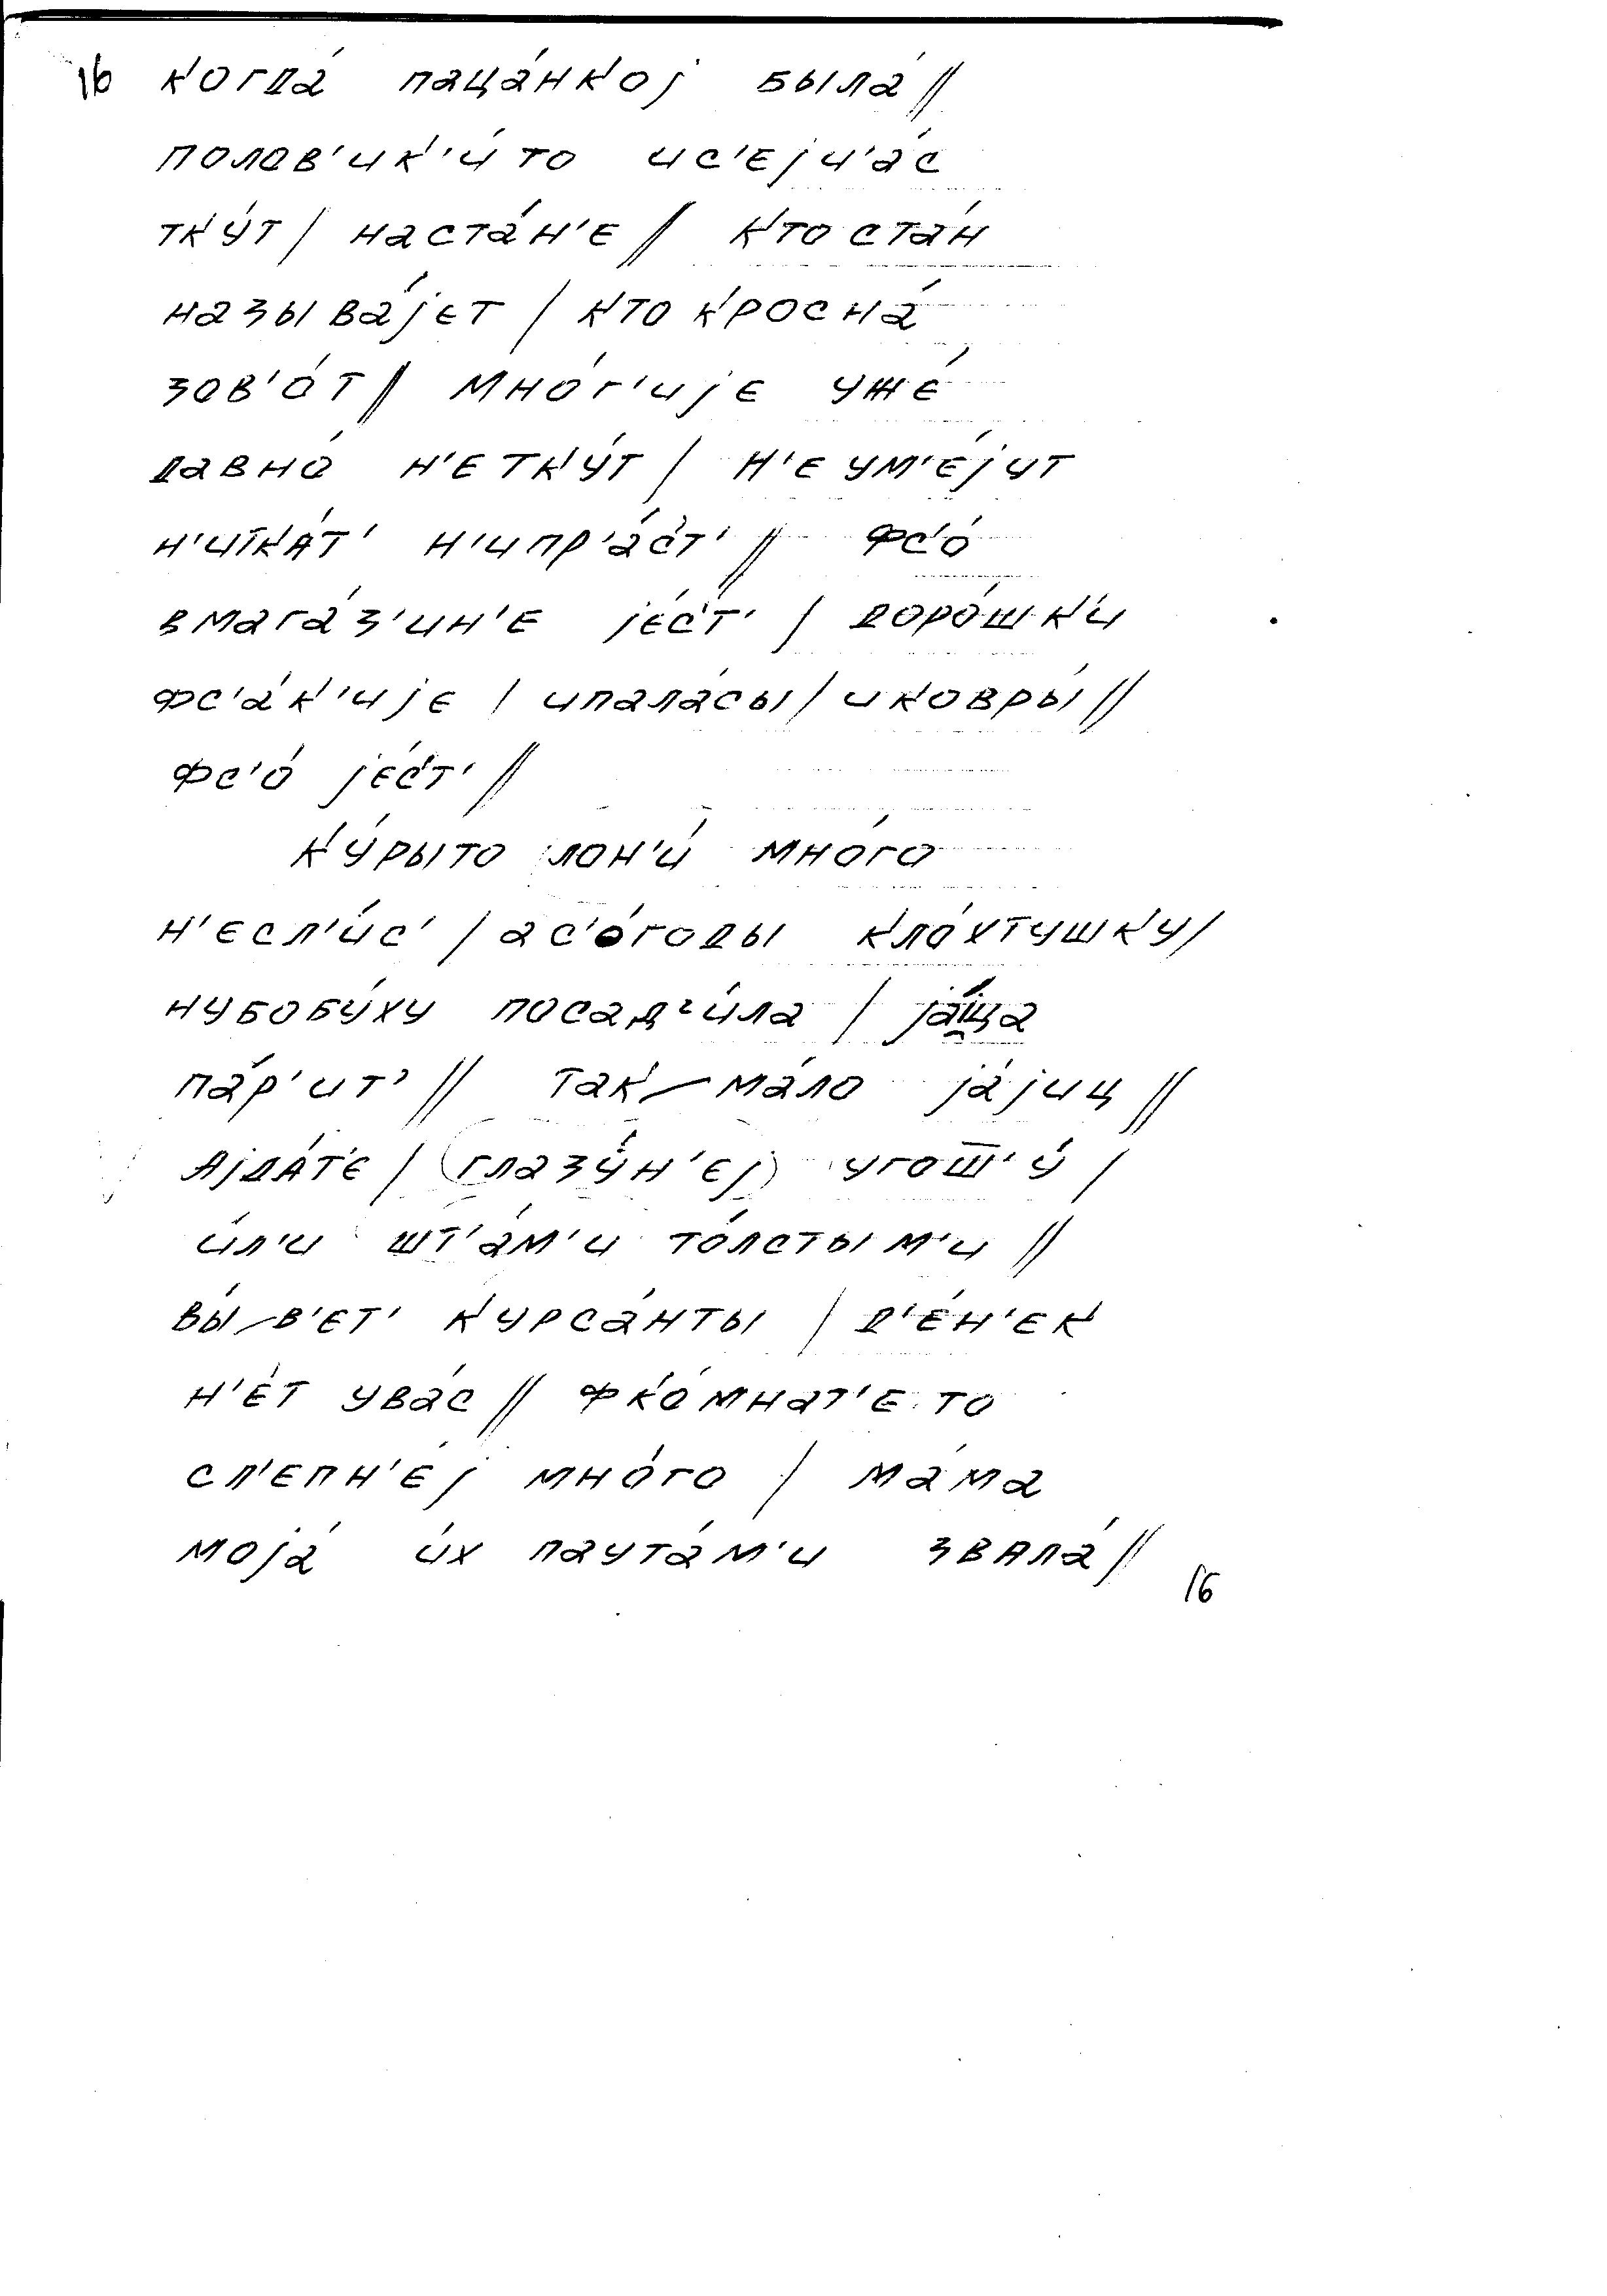 16 когда́ паца́нкој была́ //
полов'ик'и́то ис'ејч'а́с
тку́т / наста́н'е // кто ста́н
называ́јет / кто кросна́
зов'о́т // мно́г'ије уже́
давно́ н'етку́т / н'еум'е́јут
н'итка́т' н'ипр'а́с'т' // фс'о́
вмага́з'ин'е је́с'т' / доро́шки
фс'а́к'ије / ипала́сы / иковры́ //
фс'о́ је́с'т' //
ку́рыто лон'и́ мно́го
н'есл'и́с' / ас'о́годы кло́хтушку /
нубобу́ху посад'и́ла / ја́ица
па́р'ит' // так ма́ло ја́јиц //
Ајда́т'е / глазу́н'еј угош'у́ /
и́л'и шт'а́м'и то́лстым'и //
вы́ в'ет' курса́нты / д'е́н'ек
н'е́т ува́с // фко́мнат'е то
сл'епн'е́ј мно́го / ма́ма
моја́ и́х паута́м'и звала́ //
16